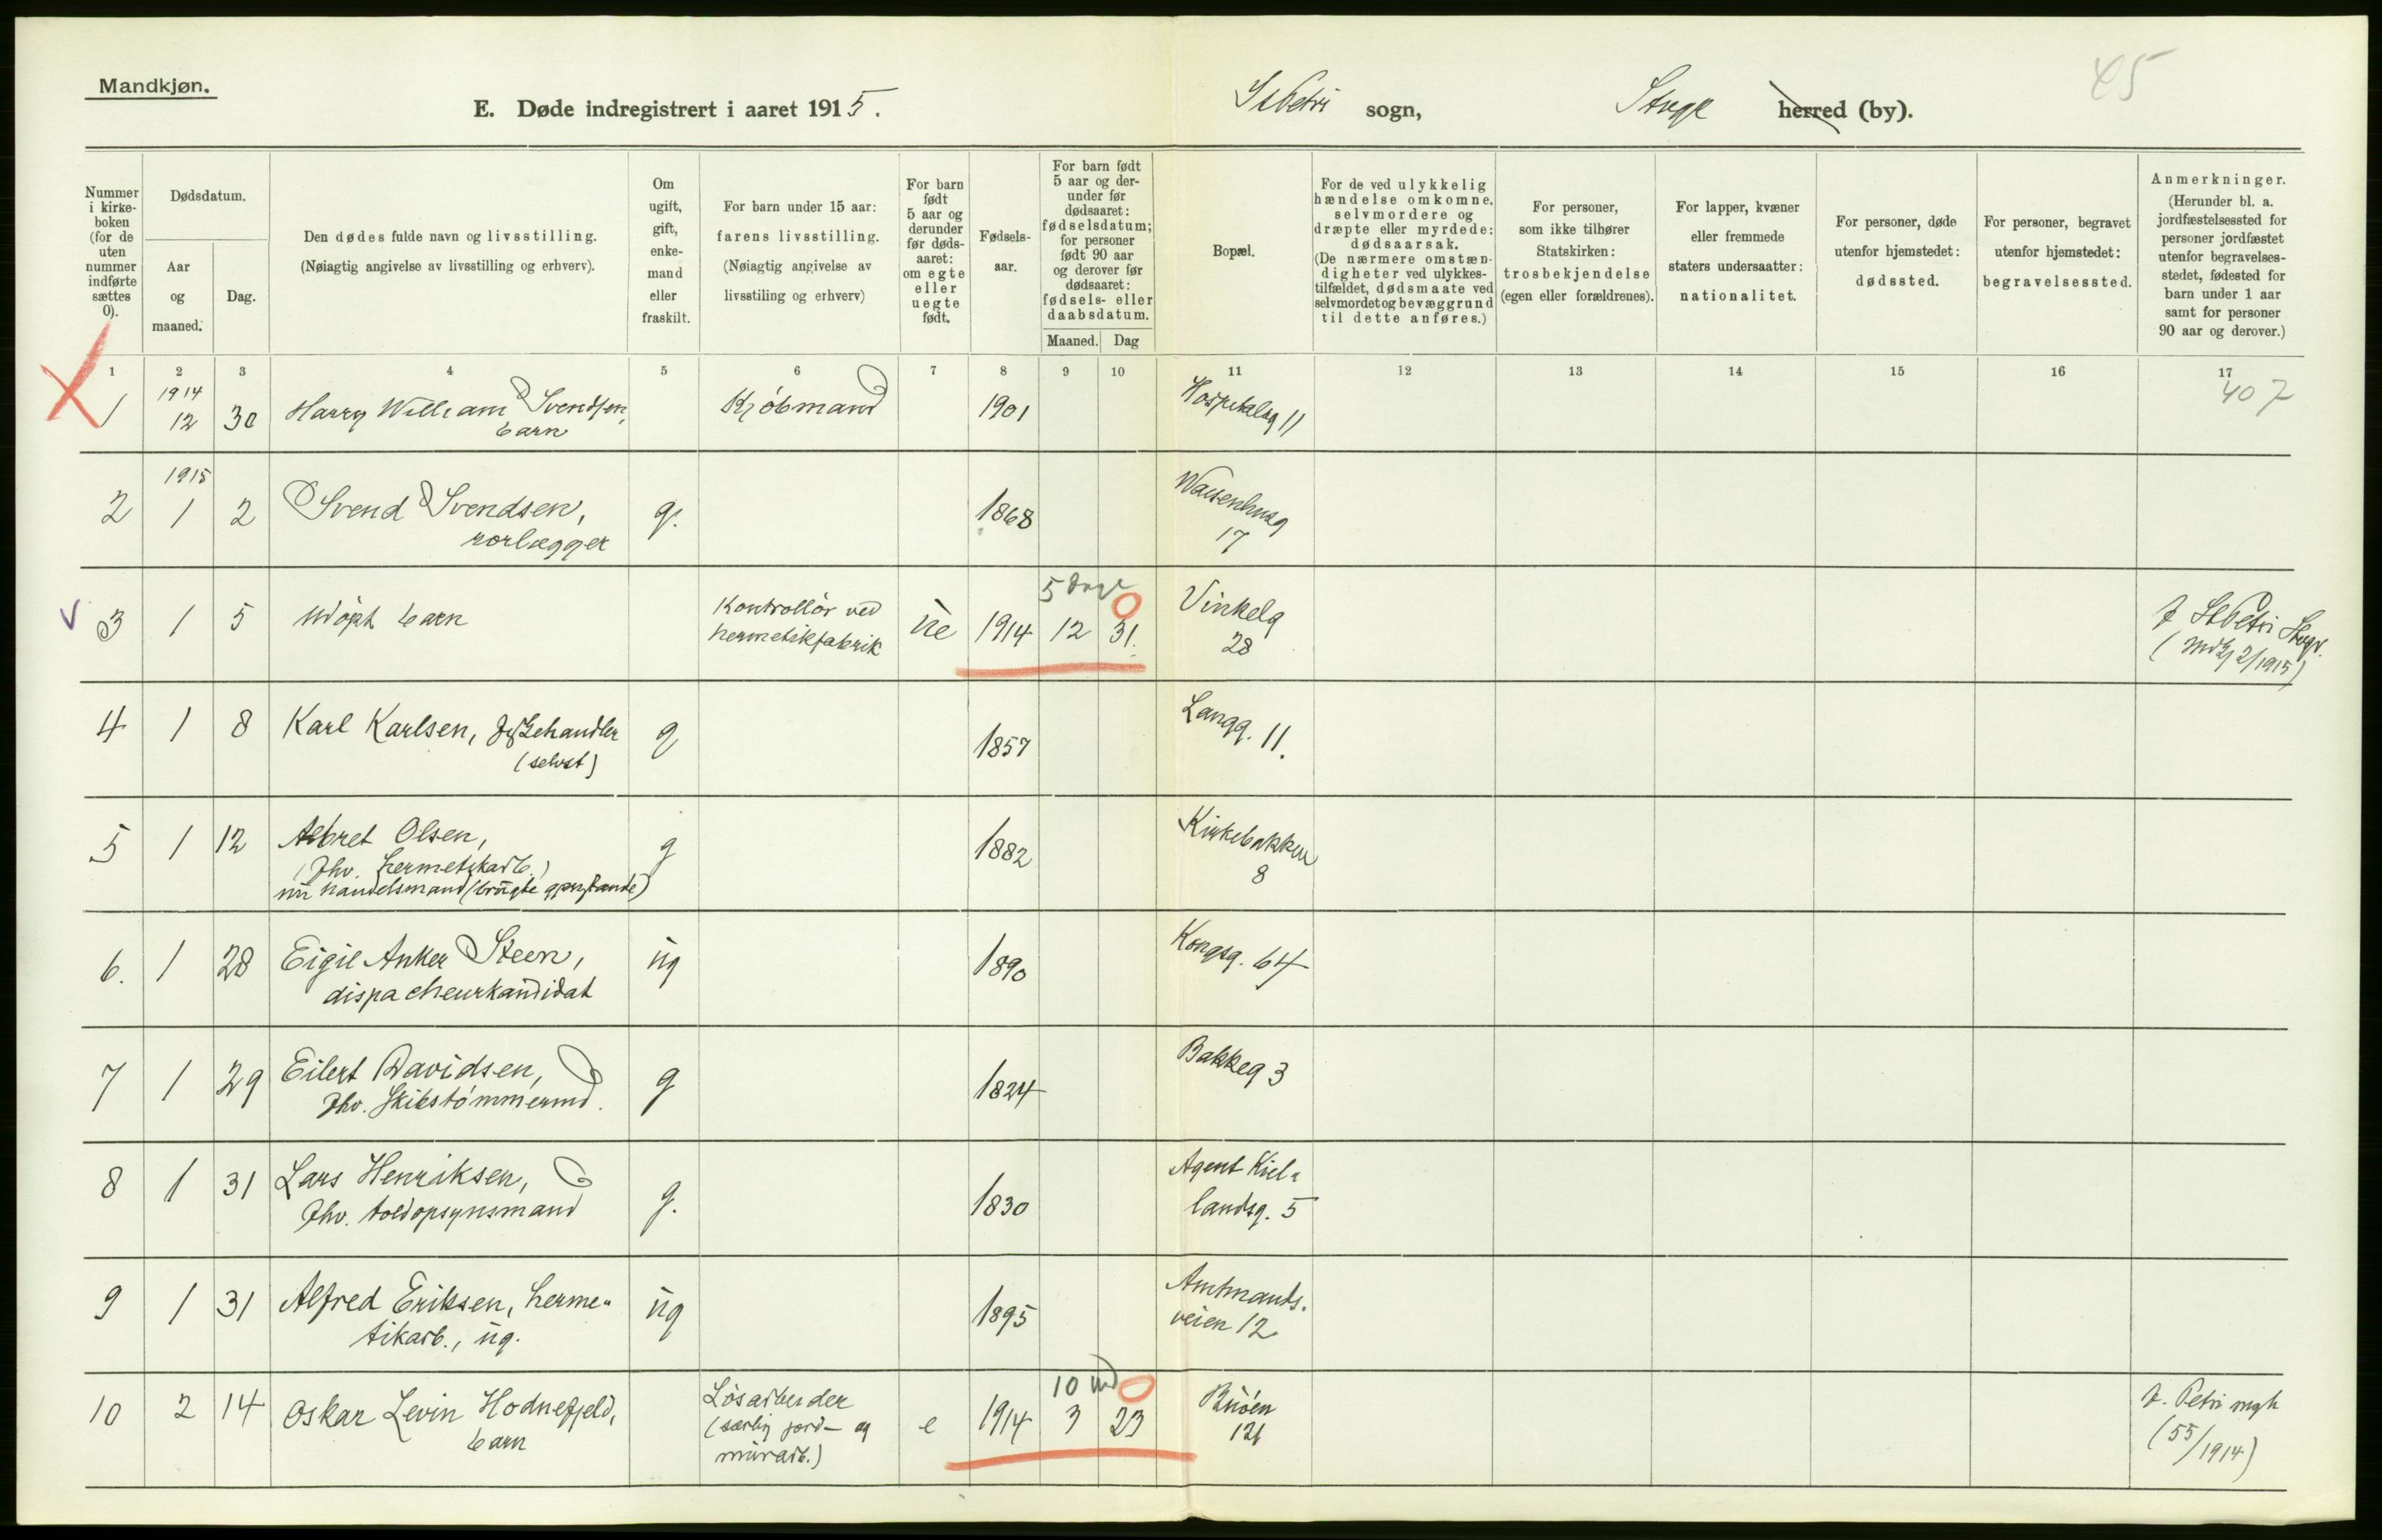 Mandkjøn.
E. Døde indregistrert i aaret 1915.
St Petri sogn, Stvgr herred (by).
45
Nummer i kirkeboken (for de uten nummer indførte sættes 0).
Dødsdatum.
Aar og maaned.
Dag.
Den dødes fulde navn og livsstilling.
(Nøiagtig angivelse av livsstilling og erhverv).
Om ugift, gift, enkemand eller fraskilt.
For barn under 15 aar:
farens livsstilling.
(Nøiagtig angivelse av
livsstiling og erhverv)
For barn født 5 aar og derunder før dødsaaret: om egte eller uegte født.
Fødselsaar.
For barn født 5 aar og derunder før dødsaaret: fødselsdatum; for personer født 90 aar og derover før dødsaaret: fødsels- eller daabsdatum.
Maaned. Dag
Bopæl.
For de ved ulykkelig hændelse omkomne, selvmordere og dræpte eller myrdede: dødsaarsak.
(De nærmere omstændigheter ved ulykkestilfældet, dødsmaate ved selvmordet og bevæggrund til dette anføres.)
For personer, som ikke tilhører Statskirken: trosbekjendelse (egen eller forældrenes).
For lapper, kvæner eller fremmede staters undersaatter: nationalitet.
For personer, døde utenfor hjemstedet: dødssted.
For personer, begravet utenfor hjemstedet: begravelsessted.
Anmerkninger.
(Herunder bl. a. jordfæstelsessted for personer jordfæstet utenfor begravelsesstedet, fødested for barn under 1 aar samt for personer 90 aar og derover.)
1 2 3 4 5 6 7 8 9 10 11 12 13 14 15 16 17
1 1914 12 30 Harry William Svendsen, barn Kjøbmand 1901 Hospitalsg 11 407
2 1915 1 2 Svend Svendsen, rørlægger g. 1868 Waisenhusg 17
3 1 5 Udøpt barn Kontrollør ved hermetikfabrik ue 1914 12 31. 5 dage 0 Vinkelg 28 f. St Petri Stvgr. 2/1915)
4 1 8 Karl Karlsen, handler (selvst) g 1857 Langg. 11.
5 1 12 Albret Olsen, (Fhv. hermetikarb.) nu handelsmand (brugte gjenstande) g 1882 Kirkebakken 8
6. 1 28 Eigil Anker Steen, dispacheurkandidat ug 1890 Kongsg. 64
7 1 29 Eilert Davidsen, Fhv. Skibstømmermd. g 1824 Bakkeg 3
8 1 31 Lars Henriksen, Fhv. toldopsynsmand g. 1830 Agent Kiellandsg. 5
9 1 31 Alfred Eriksen, hermetikarb., ug. ug 1895 Amtmandsveien 12
10 2 14 Oskar Levin Hodnefjeld, barn Løsarbeider (særlig jord- og murarb.) e 1914 3 23 10 md 0 Buøen 126 f. Petri mgh (55/1914)